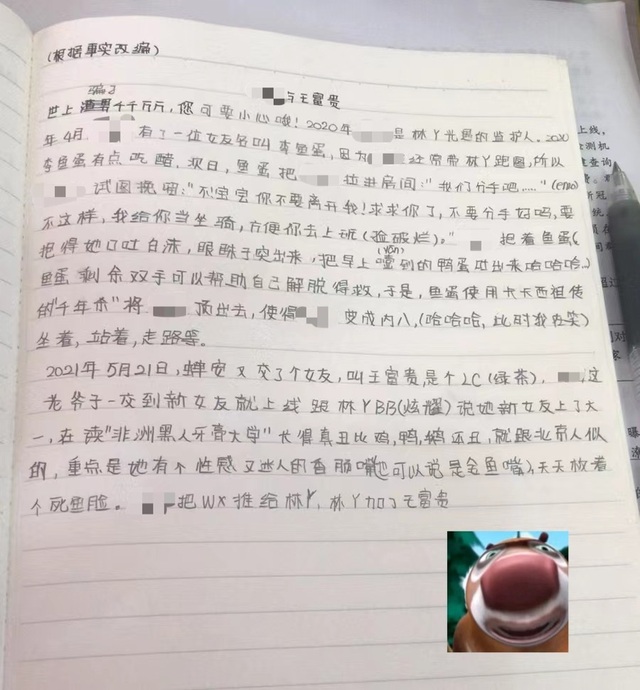 (根据事实改编)
骗子
与王富贵
世上渣男千千万万,您可要小心哦!2020年 是林丫光思的监护人。2020
年4月, 有了一位女友名叫李鱼蛋,因为 经常带林丫跑圈,所以
李鱼蛋有点吃醋,次日,鱼蛋把 拉进房间:"我们分手吧....."(emo)
试图挽留:"不!宝宝你不要离开我!求求你了,不要分手好吗,要
不这样,我给你当坐骑,方便你去上班(捡破烂)。" 抱着鱼蛋(
把得她口吐白沫,眼睁子突出来,把早上噎到的鸭蛋吐出来哈哈哈)
(yān)
鱼蛋剩余双手可以帮助自己解脱得救,于是,鱼蛋使用卡卡西祖传
的"千年杀"将 顶出去,使得 变成内八,(哈哈哈,此时我在笑)
坐着,站着,走路等。
2021年5月21日,蝉安又交了个女友,叫王富贵,是个LC(绿茶), 这
老爷子一交到新女友就上线跟林丫BB(炫耀)说她新女友上了大
一,在读"非洲黑人牙膏大学"长得真丑比鸡,鸭,鹅还丑,就跟北京人似
的,重点是她有个性感又迷人的香肠嘴(也可以说是金鱼嘴)天天板着
个死鱼脸。 把WX推给林丫,林丫加了王富贵
上线,